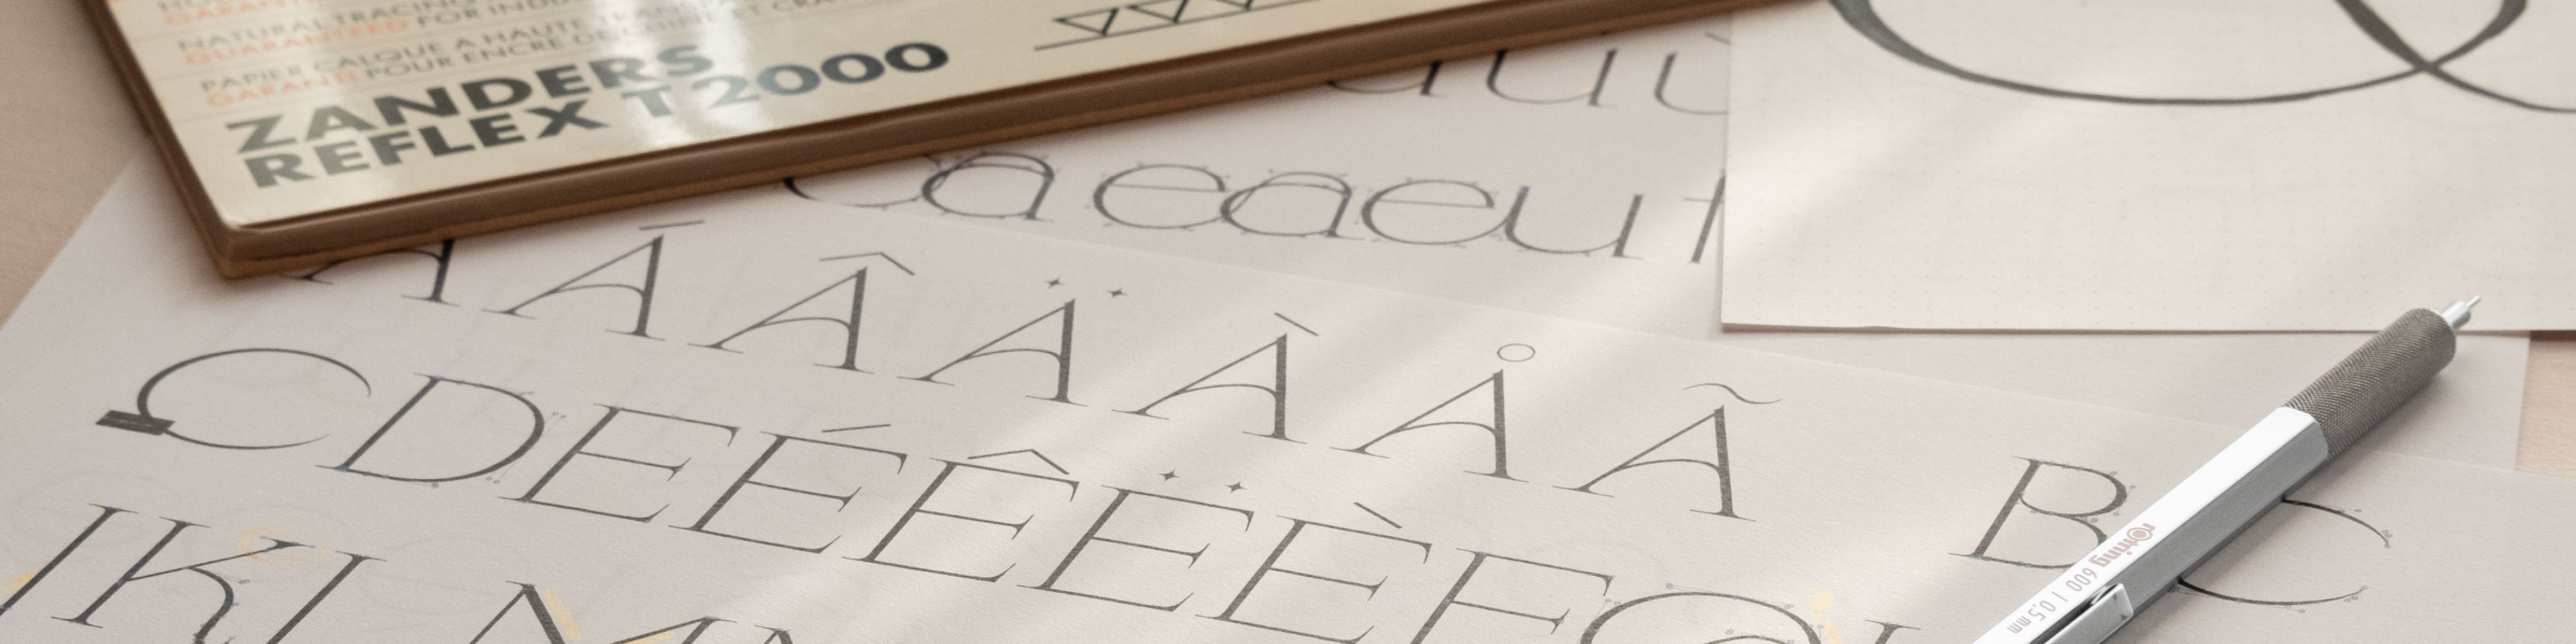 GARANTI
NATURAL TRACING
GUARANTEED FOR INDIA
PAPIER CALQUE A HAUTE TRANSPA
GARANTI POUR ENCRE DE CHINE ET CRA
ZANDERS
REFLEX T 2000
ca eaeu
Á Â Ä À Å Ã
B C
C D E É Ê Ë È F G
I K L M
rotring 600 | 0,5 mm